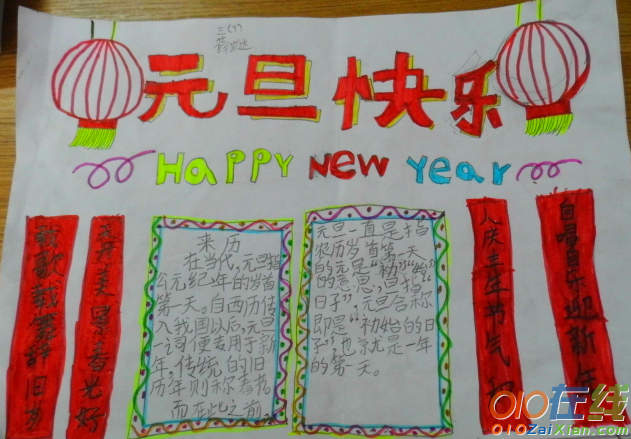 三(7)
元旦快乐
HAPPY NEW YeaR
来历
在当代，元旦指
公元纪年的岁首
第一天。自西历传
入我国以后，元旦
一词便专用于新
年，传统的旧
历年则称春节。
而在此之前，
元旦一直是指
农历岁首第一天
的元是“初”“始”
的意思，旦指“
日子”，元旦合称
即是“初始的日
子”，也就是一年
的第一天。
载歌载舞辞旧岁
美景春光好
人庆丰年节气
自唱自乐迎新年
010在线
010ZaiXian.com